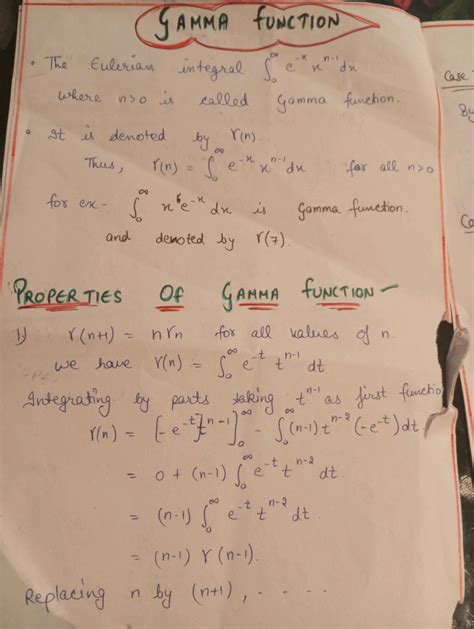 GAMMA FUNCTION
• The Eulerian integral ∫₀^∞ e^-x x^n-1 dx
where n>0 is called Gamma function.
• It is denoted by γ(n).
Thus, γ(n) = ∫₀^∞ e^-x x^n-1 dx for all n>0
for ex- ∫₀^∞ x^6 e^-x dx is Gamma function.
and denoted by γ(7).
PROPERTIES OF GAMMA FUNCTION -
1) γ(n+1) = nγn for all values of n.
we have γ(n) = ∫₀^∞ e^-t t^n-1 dt
Integrating by parts taking t^n-1 as first functio
γ(n) = [-e^-t} t^n-1]₀^∞ - ∫₀^∞ (n-1) t^n-2 (-e^-t) dt.
= 0 + (n-1) ∫₀^∞ e^-t t^n-2 dt.
= (n-1) ∫₀^∞ e^-t t^n-2 dt.
= (n-1) γ(n-1).
Replacing n by (n+1), - - - - -
Case
By